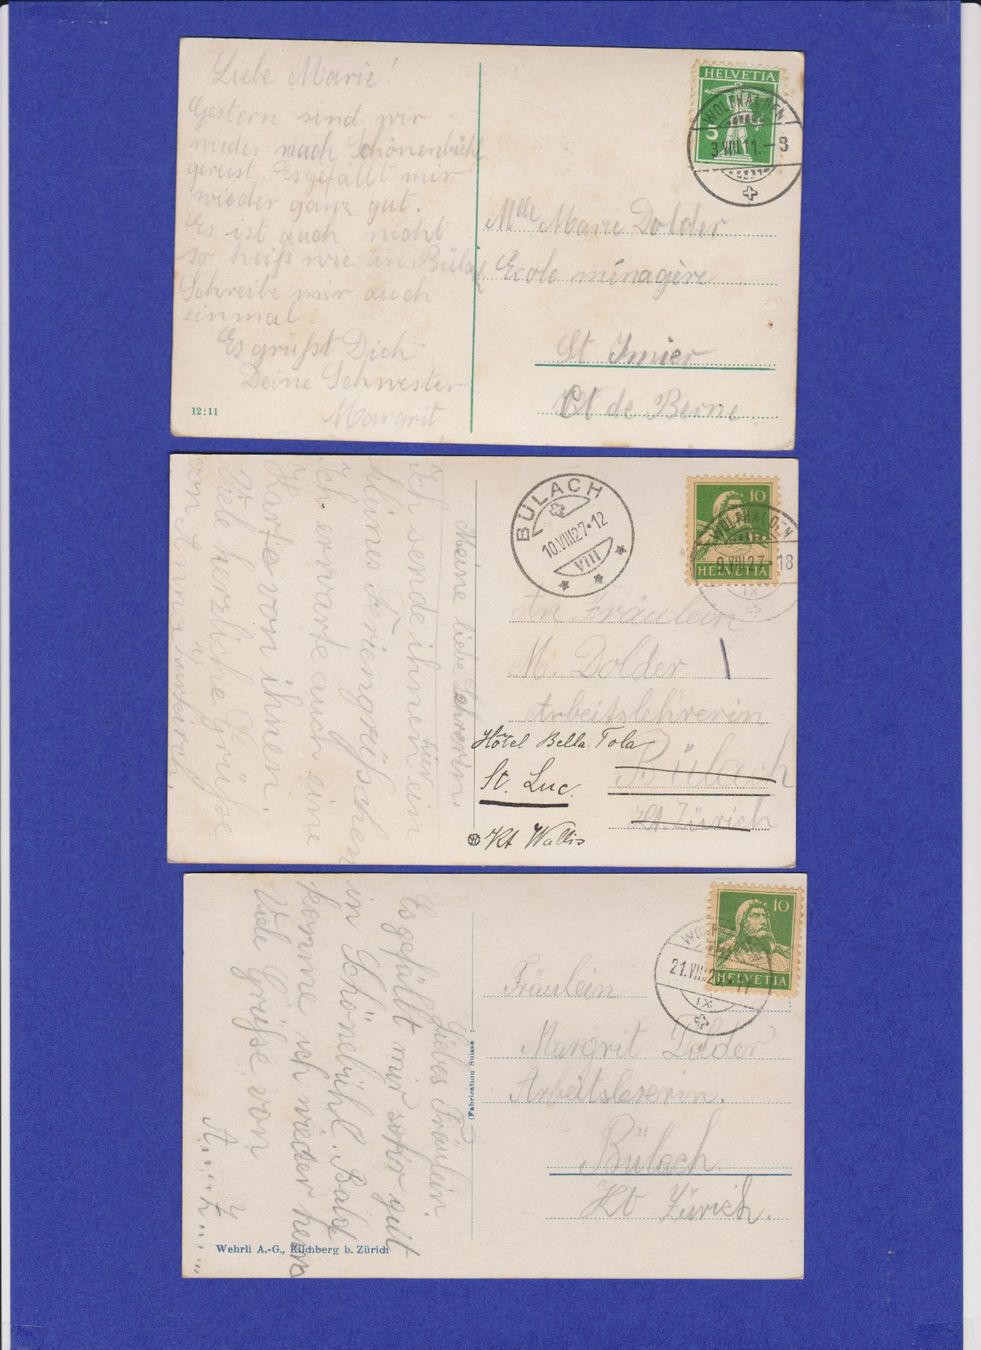 Liebe Marie!
Gestern sind wir
wieder nach Schönenbühl
gereist. Es gefällt mir
wieder ganz gut.
Es ist auch nicht
so heiß wie in Bülach
Schreibe mir auch
einmal.
Es grüßt Dich
Deine Schwester
Margrit
12:11
HELVETIA
5
WOLFHALDEN
3.VIII.11.-8
Mlle Marie Dolder
Ecole ménagère
St Imier
Ct de Berne.
Meine liebe Lehrerin
Ich sende ihnen hier ein
kleines Feriengrüßchen
Ich erwarte auch eine
Karte von ihnen.
Viele herzliche Grüße
von Anna
BÜLACH
10.VIII.27.12
IIIA
10
HELVETIA
WOLFHALDEN
VIII.27.-18
IX
An Fräulein
M. Dolder
Arbeitslehrerin
Bülach
Kt. Zürich
Hôtel Bella Tola
St. Luc.
Kt Wallis
Liebes Fräulein.
Es gefällt mir sehr gut
in Schönebühl. Bald
komme ich wieder heim
Viele Grüße von
A.....
Wehrli A.-G., Kilchberg b. Zürich
(Fabrication Suisse)
10
HELVETIA
21.VIII.2
IX
Fräulein
Margrit Dolder
Arbeitslererin.
Bülach
Kt Zürich.